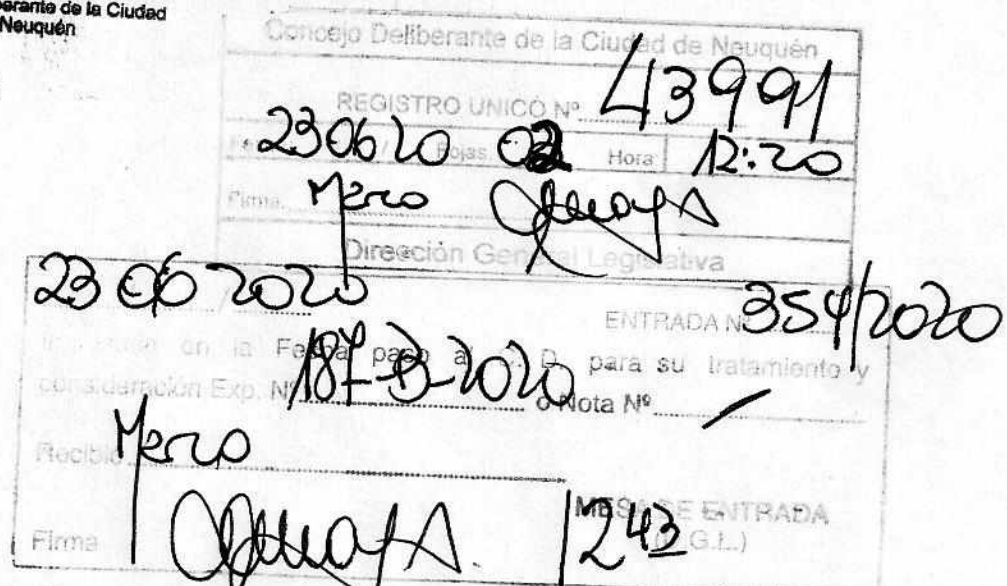 berante de la Ciudad
Neuquén
Concejo Deliberante de la Ciudad de Neuquén
REGISTRO UNICO Nº 43991
23 06 20 Fojas 02 Hora: 12:20
Firma
Dirección General Legislativa
23 06 2020 ENTRADA Nº 354/2020
en la Fecha paso al C. D. para su tratamiento y
consideración Exp. Nº 187-B-2020 o Nota Nº
Recibió
MESA DE ENTRADA
Firma 243 (D.G.L.)